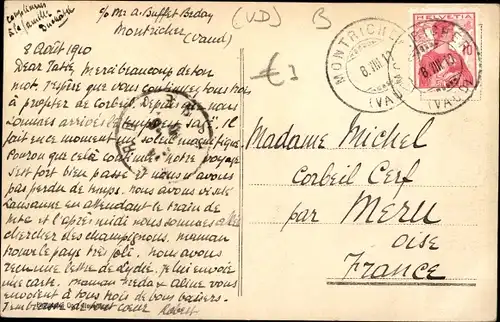 compliments
à la famille
c/o Mr A. Buffet Beday
Montricher
(Vaud)
(VD)
B
€ 3
8 Août 1910
Dear Tatie, Merci beaucoup de ton
mot. J'espère que vous continuez tous trois
à profiter de Corbeil. Depuis que nous
sommes arrivés le temps est sûr. Il
fait en ce moment un soleil magnifique
Pourvu que cela continue. Notre voyage
s'est fort bien passé et nous n'avons
pas perdu de temps. nous avons visité
Lausanne en attendant le train de
et l'après midi nous sommes allés
chercher des champignons. maman
trouve le pays très joli. nous avons
reçu une lettre de Lydie. je lui envoie
une carte. maman Freda & Aline vous
envoient à tous trois de bons baisers.
J'embrasse de tout cœur Robert
MONTRICHER
8. VIII. 10
(VAUD)
MONTRICHER
8. VIII. 10
(VAUD)
HELVETIA
10
Madame Michel
Corbeil Cerf
par Meru
Oise
France